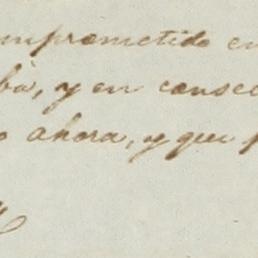 mprometido en
ba, y en consec
o ahora, y que p